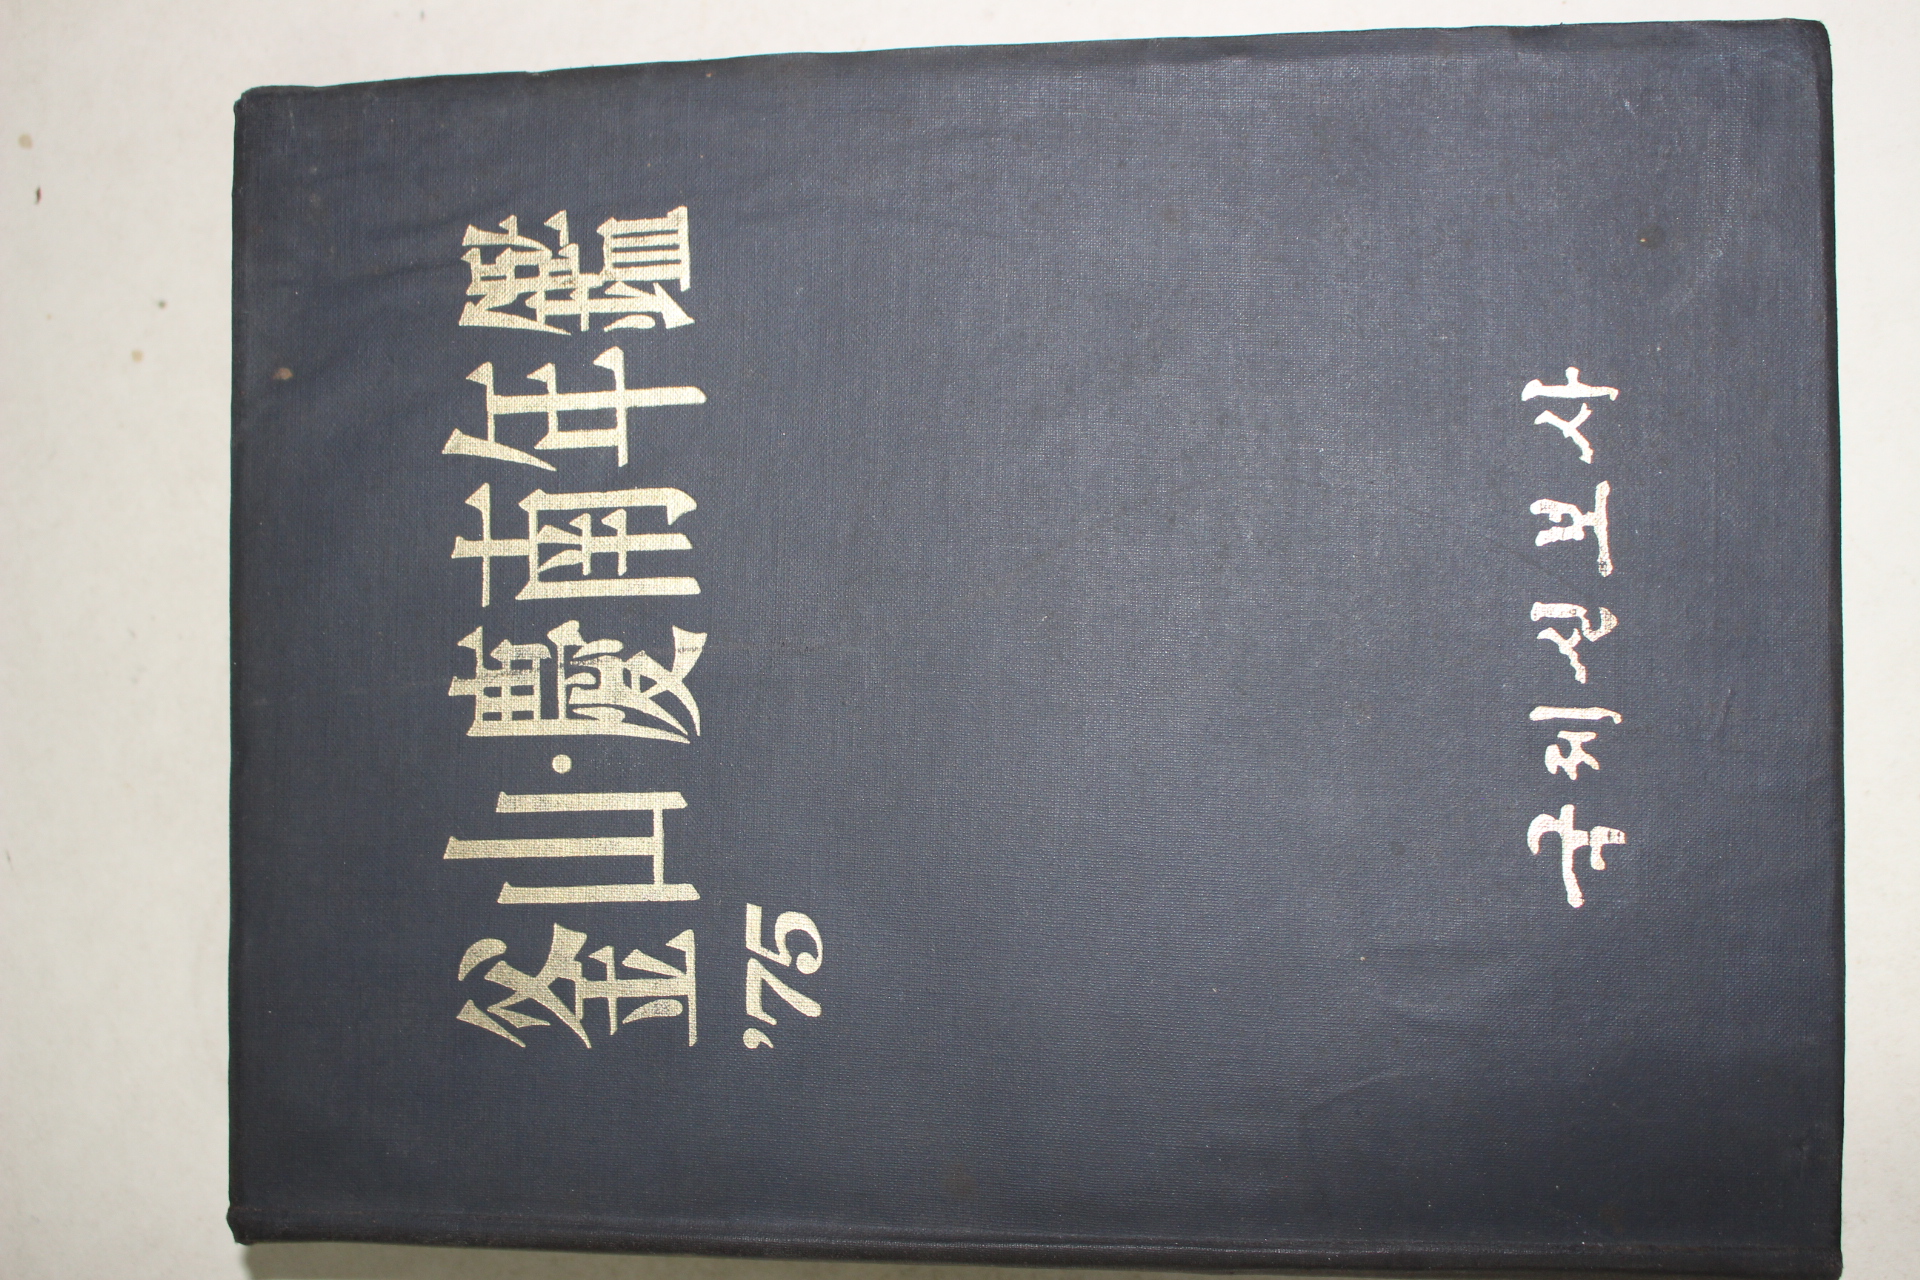 釜山·慶南年鑑
'75
국제신보사